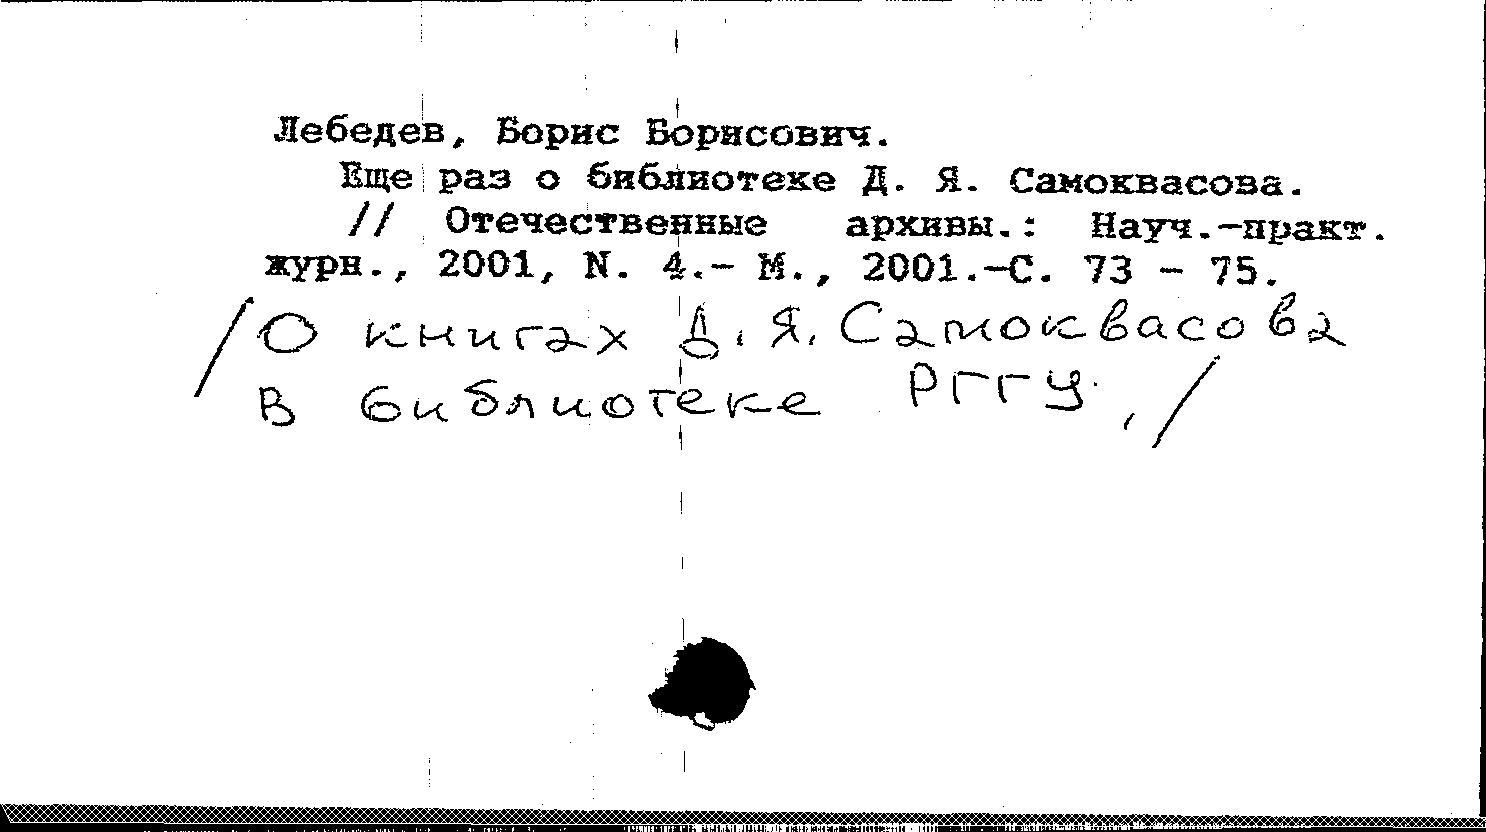 Лебедев, Борис Борисович.
Еще раз о библиотеке Д. Я. Самоквасова.
// Отечественные архивы.: Науч.-практ.
журн., 2001, N. 4.- М., 2001.-С. 73 - 75.
/О книгах Д. Я. Самоквасова
в библиотеке РГГУ./